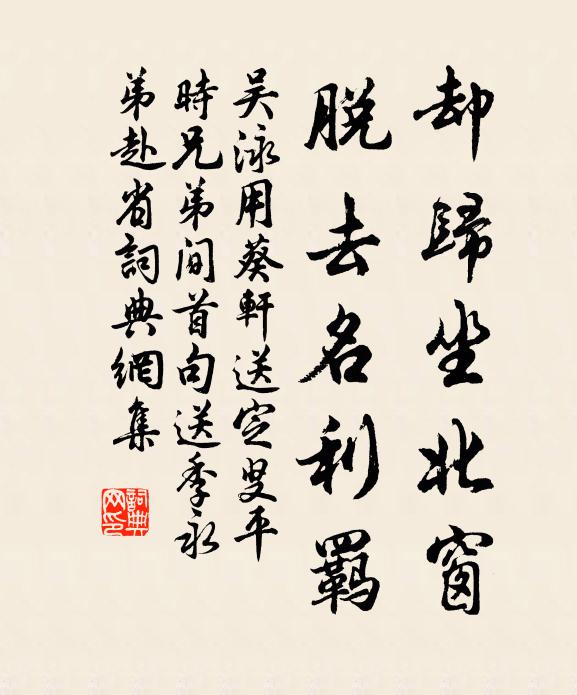 却歸坐北窗
脫去名利羈
吴泳用葵軒送定叟平
時兄弟間首句送季永
弟赴省詞典網集
詞典网印